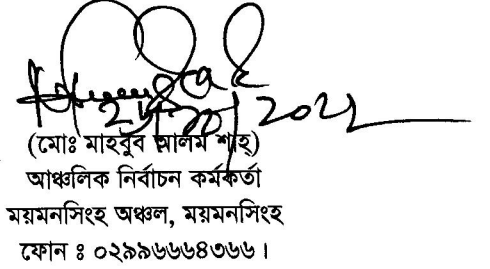 (মোঃ মাহবুব আলম শাহ্)
আঞ্চলিক নির্বাচন কর্মকর্তা
ময়মনসিংহ অঞ্চল, ময়মনসিংহ
ফোন ঃ ০২৯৯৬৬৬৪৩৬৬।